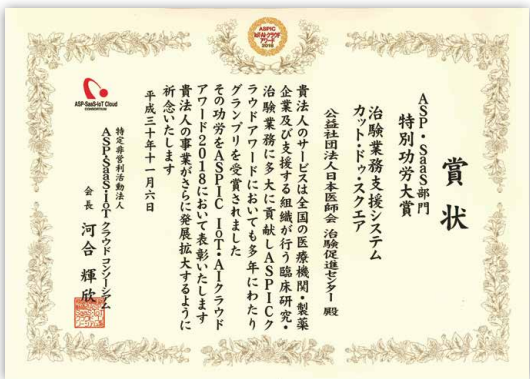 ASPIC
IoT・AI・クラウド
アワード
2018
賞状
ASP・SaaS部門
特別功労大賞
治験業務支援システム
カット・ドゥ・スクエア
公益社団法人日本医師会 治験促進センター 殿
貴法人のサービスは全国の医療機関・製薬
企業及び支援する組織が行う臨床研究・
治験業務に多大に貢献しASPICク
ラウドアワードにおいても多年にわたり
グランプリを受賞されました
その功労をASPIC IoT・AIクラウド
アワード2018において表彰いたします
貴法人の事業がさらに発展拡大するように
祈念いたします
平成三十年十一月六日
ASP・SaaS・IoT Cloud
CONSORTIUM
特定非営利活動法人
ASP・SaaS・IoT クラウド コンソーシアム
会長 河合 輝欣